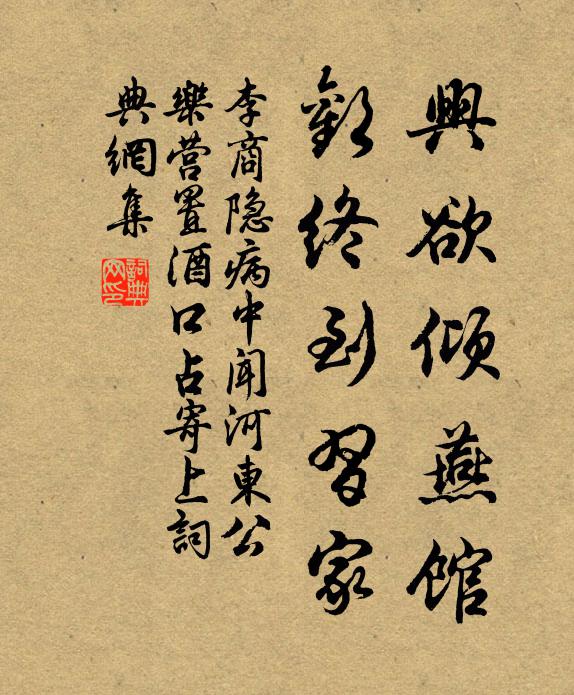 興欲傾燕館
歡終到習家
李商隐病中闻河東公
樂营置酒口占寄上詞
典網集
詞典
网印